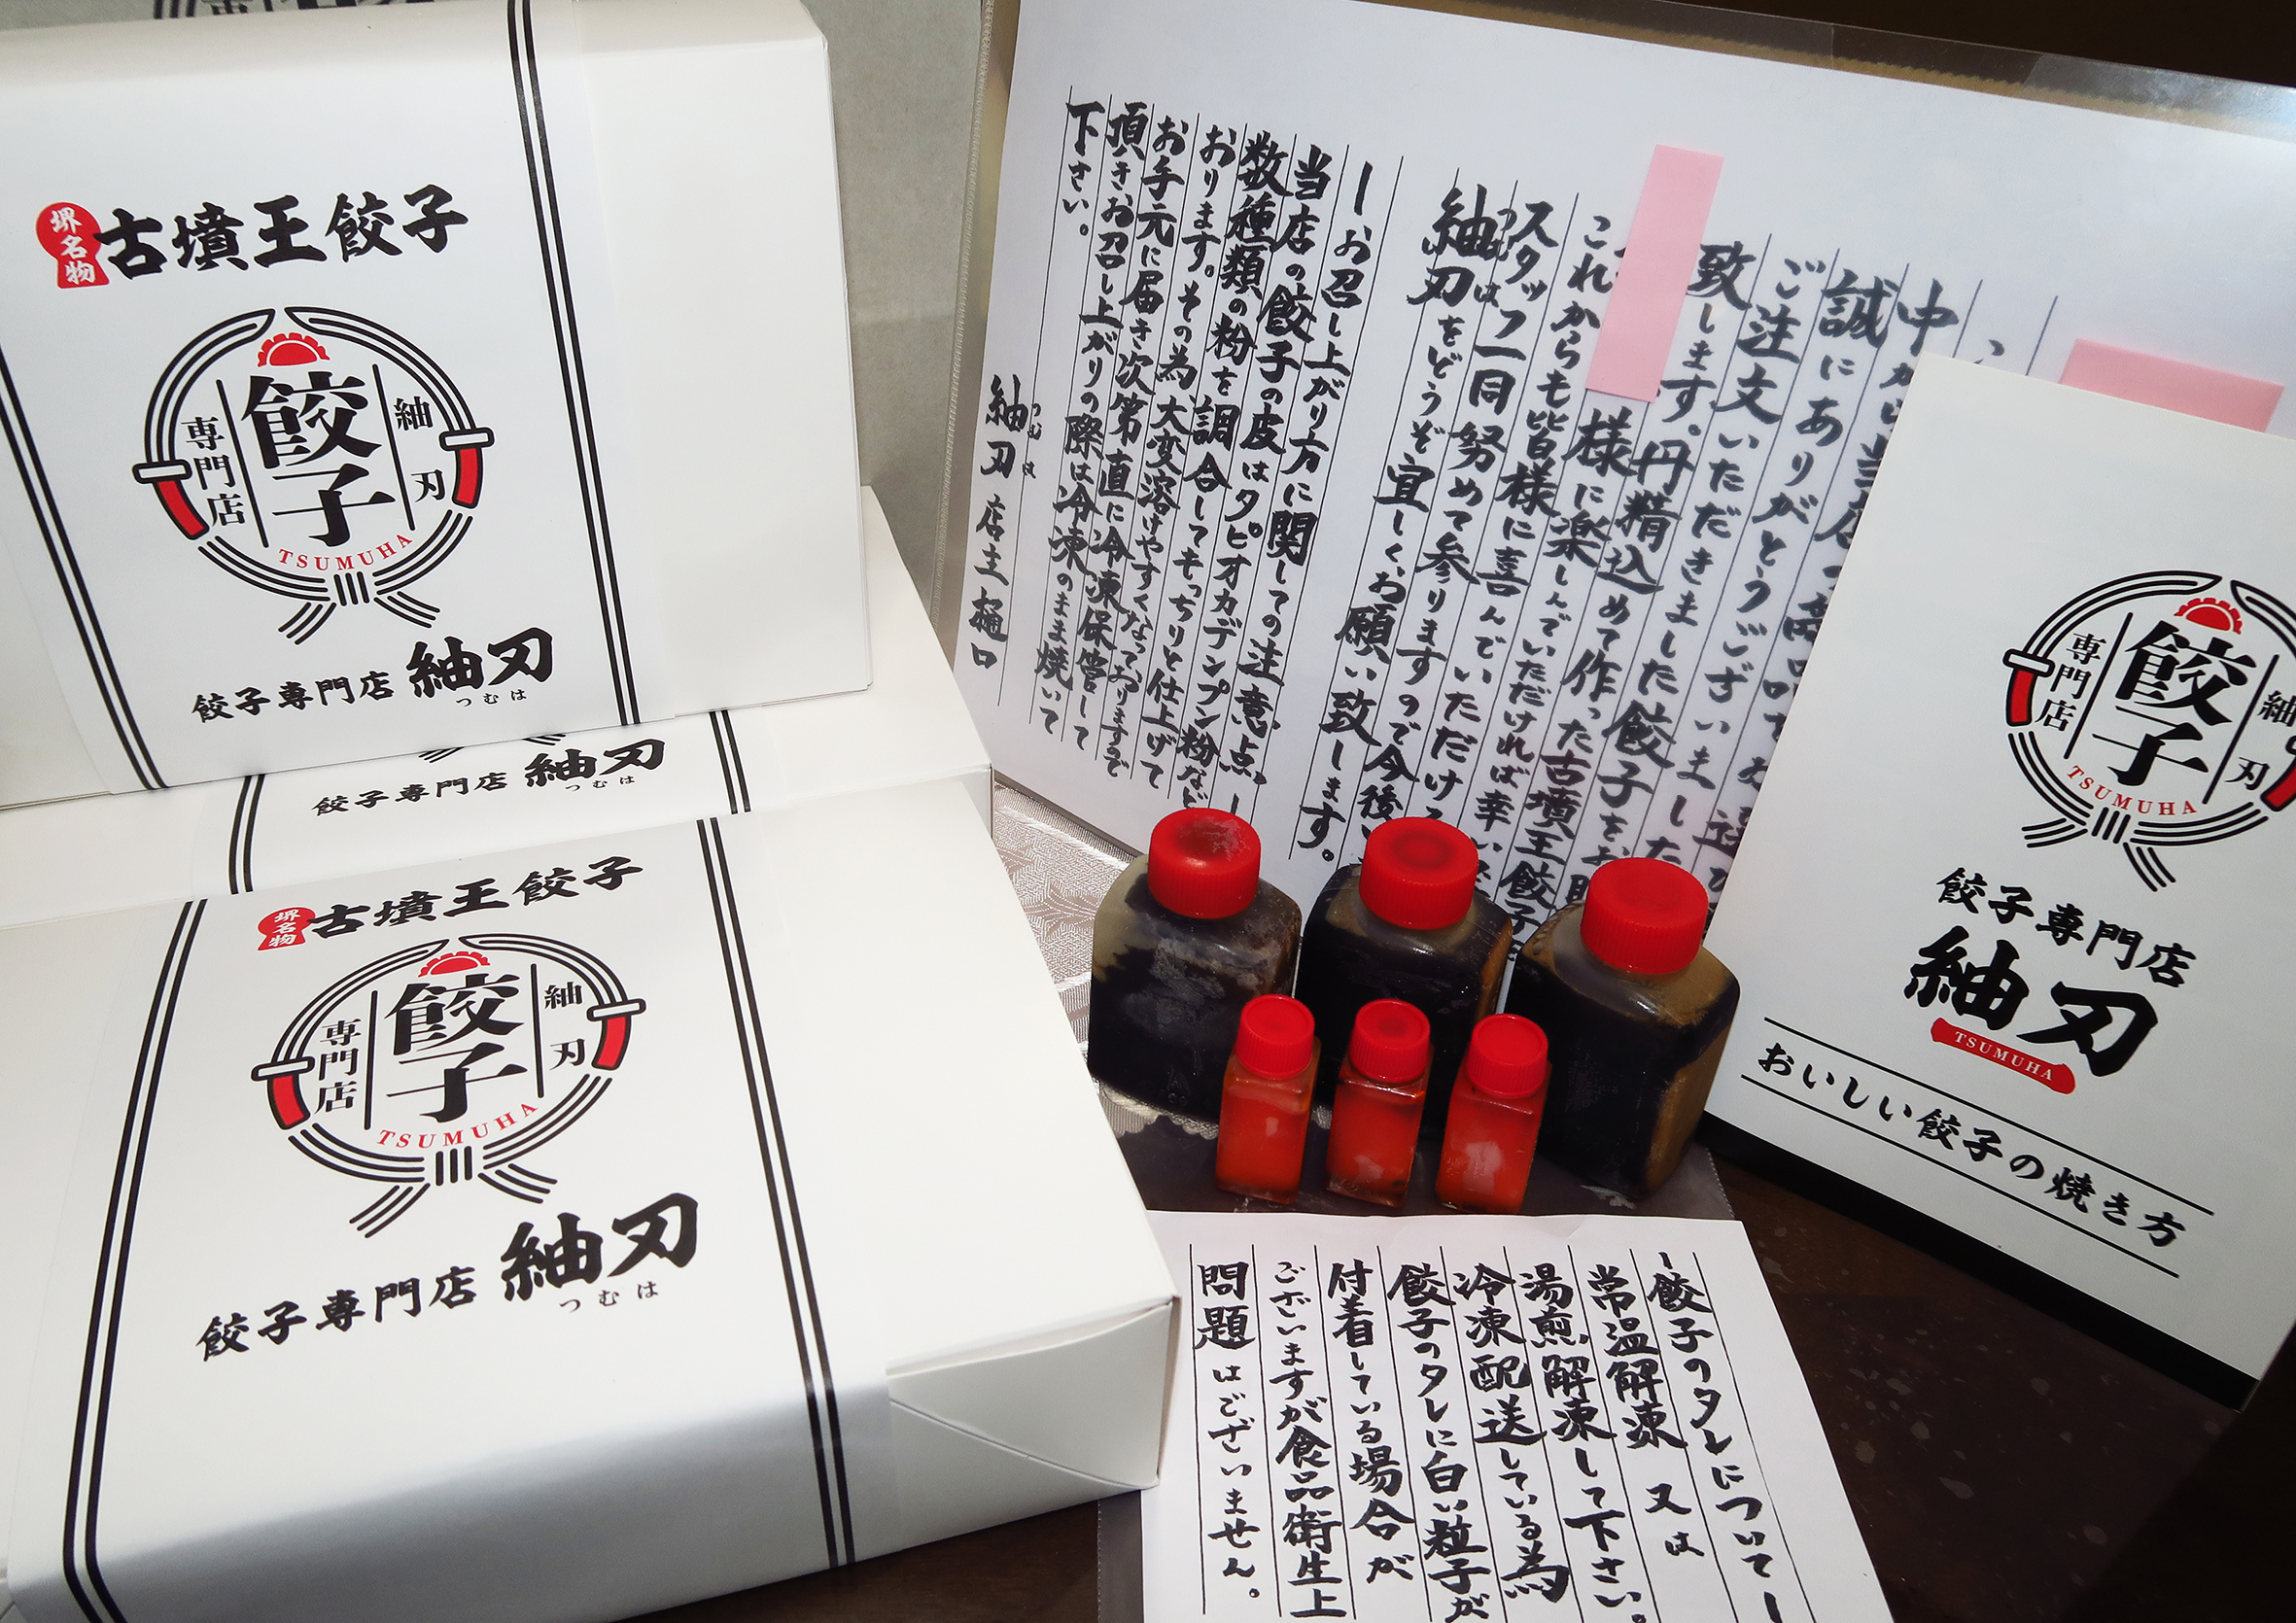 堺名物
古墳王餃子
紬刃
餃子
専門店
TSUMUHA
餃子専門店 紬刃
つむは
餃子専門店 紬刃
つむは
堺名物
古墳王餃子
紬刃
餃子
専門店
TSUMUHA
餃子専門店 紬刃
つむは
誠にありがとうございまし
ご注文いただきました
致します。丹精込めて作った古墳王餃子
様に楽しんでいただければ幸い
これからも皆様に喜んでいただける
スタッフ一同努めて参りますので今後
紬刃をどうぞ宜しくお願い致します。
つむは
ーお召し上がり方に関しての注意点ー
当店の餃子の皮はタピオカデンプン粉など
数種類の粉を調合してもっちりと仕上げて
おります。その為大変溶けやすくなっておりますので
お手元に届き次第直に冷凍保管して
頂き、お召し上がりの際は冷凍のまま焼いて
下さい。
つむは
紬刃 店主 樋口
紬刃
餃子
専門店
TSUMUHA
餃子専門店
紬刃
TSUMUHA
おいしい餃子の焼き方
ー餃子のタレについてー
常温解凍 又は
湯煎解凍して下さい。
冷凍配送している為
餃子のタレに白い粒子が
付着している場合が
ございますが食品衛生上
問題はございません。